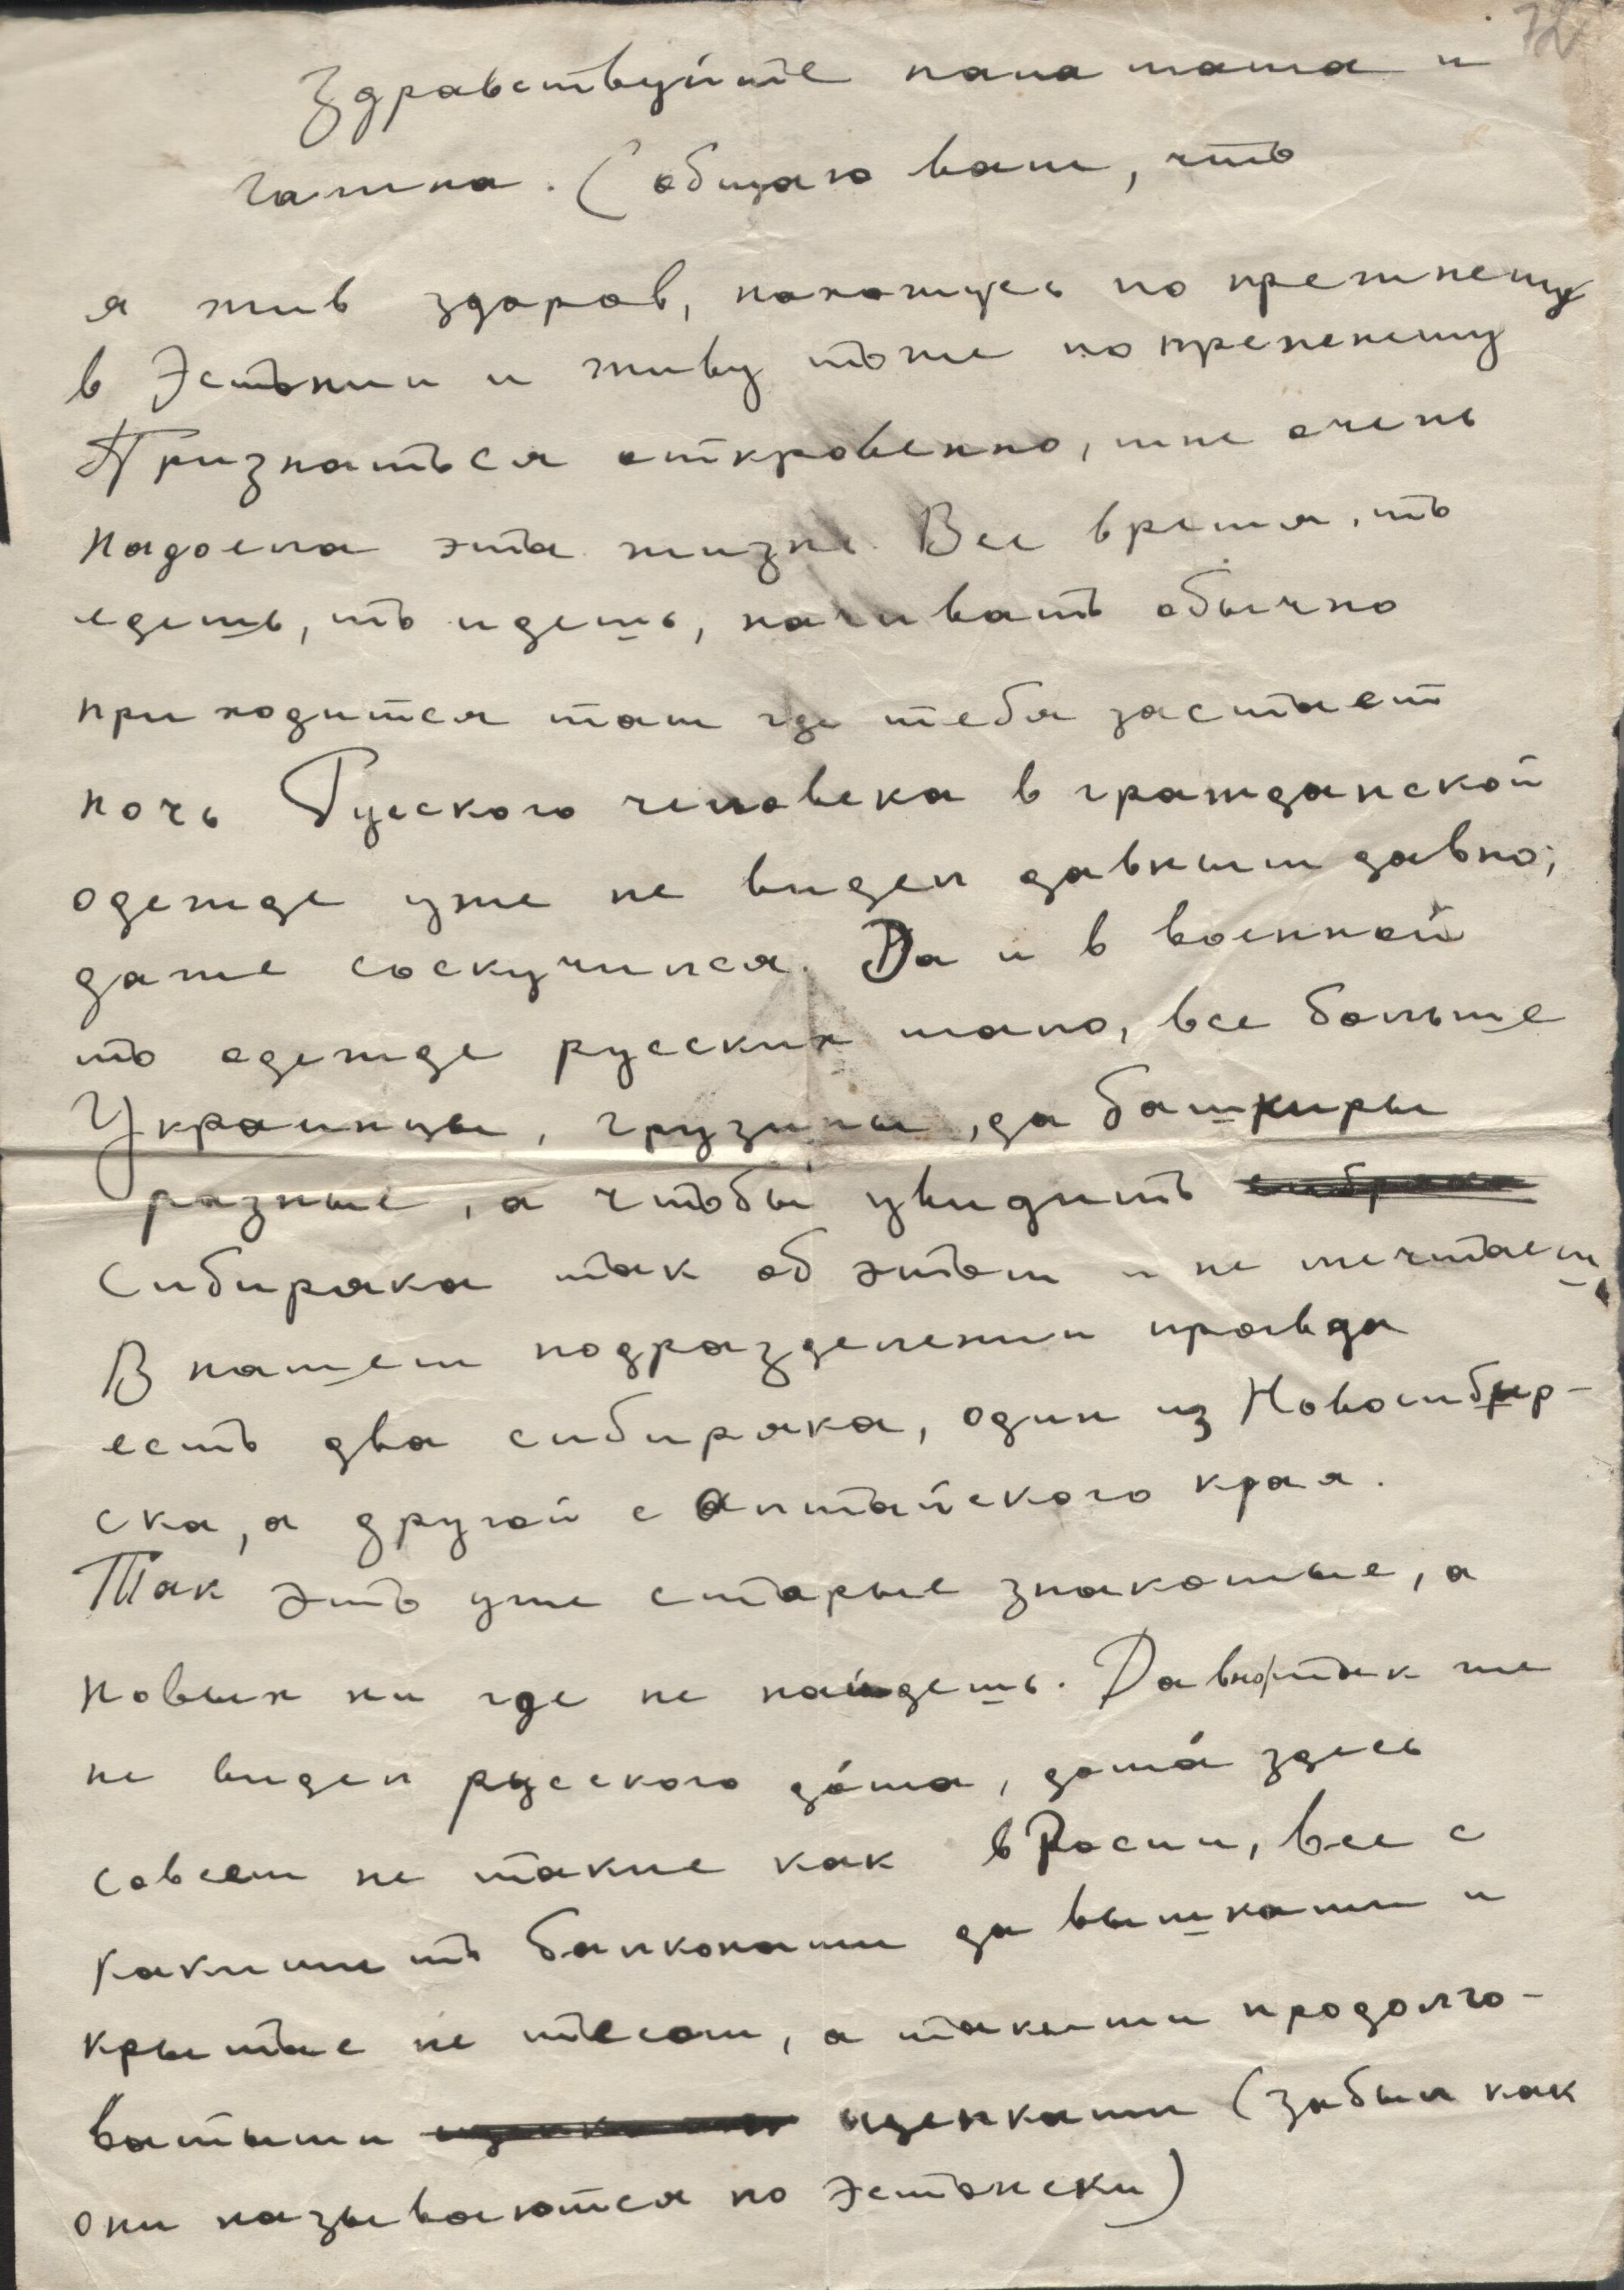 72
Здравствуйте папа мама и
Галина. Собщаю вам, что
я жив здоров, нахожусь по прежнему
в Эстонии и живу тоже по прежнему
Признаться откровенно, мне очень
надоела эта жизнь. Все время, то
едешь, то идешь, начивать обычно
приходится там где тебя застает
ночь Руского человека в гражданской
одежде уже не видел давным давно,
даже соскучился. Да и в военной
то одежде русских мало, все больше
Украинцы, грузины, да башкиры
разные, а чтобы увидить
Сибиряка так об этом и не мечтаеш,
В нашем подразделении правда
есть два сибиряка, один из Новосибир-
ска, а другой с Алтайского края.
Так это уже старые знакомые, а
новых ни где не найдешь. Давно так же
не видел русского до́ма, дома́ здесь
совсем не такие как в Росии, все с
какими то балконами да вышками и
крытые не тесом, а такими продолго-
ватыми щепками (забыл как
они называются по эстонски)